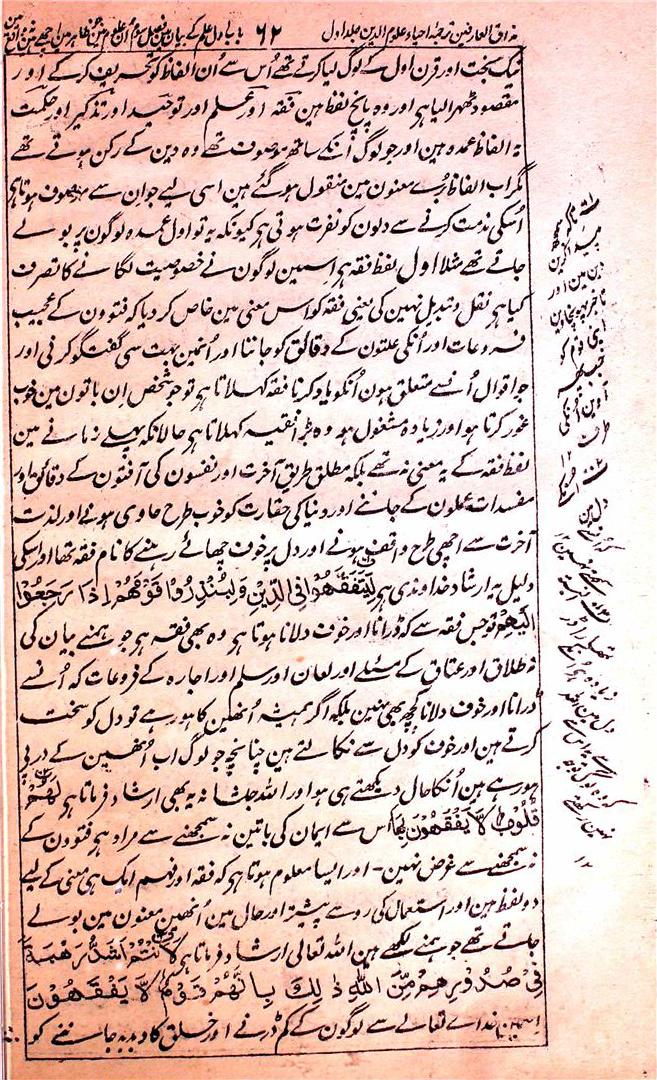 مذاق العارفین ترجمۂ احیاء علوم الدین جلد اول ۶۲ باب اول علم کے بیان مین فصل سوم اُن علوم مین جو ظاہر مین اچھے مین
نیک بخت اور قرن اول کے لوگ لیا کرتے تھے اُس سے اُن الفاظ کو تحریف کر کے اور
مقصود ٹھہرا لیا ہی اور وہ پانچ لفظ ہین فقہ اور علم اور توحید اور تذکیر اور حکمت
یہ الفاظ عمدہ ہین اور جو لوگ اُنکے ساتھ موصوف تھے وہ دین کے رکن ہوتے تھے
مگر اب الفاظ بُرے معنون مین منقول ہو گئے ہین اسی لیے جو اِن سے موصوف ہوتا ہی
اُسکی مذمت کرنے سے دلون کو نفرت ہوتی ہی کیونکہ یہ تو اول عمدہ لوگون پر بولے
جاتے تھے مثلا اول لفظ فقہ ہی اسمین لوگون نے خصوصیت لگانے کا تصرف
کیا ہی نقل و تبدیل نہین کی یعنی فقہ کو اس معنی مین خاص کر دیا کہ فتوون کے عجیب
فروعات اور اُنکی علتون کے دقائق کو جاننا اور اُنمین بہت سی گفتگو کرنی اور
جو اقوال اُنسے متعلق ہون اُنکو یاد کرنا فقہ کہلاتا ہی تو جو شخص اِن باتون مین خوب
غور کرتا ہو اور زیادہ مشغول ہو وہ بڑا فقیہ کہلاتا ہی حالانکہ پہلے زمانے مین
لفظ فقہ کے یہ معنی نہ تھے بلکہ مطلق طریق آخرت اور نفسون کی آفتون کے دقائق اور
مفسدات عملون کے جاننے اور دنیا کی حقارت کو خوب طرح حاوی ہونے اور لذت
آخرت سے اچھی طرح واقف ہونے اور دل پر خوف چھائے رہنے کا نام فقہ تھا اور اسکی
دلیل یہ ارشاد خداوندی ہی لِیَتَفَقَّهُوْا فِی الدِّیْنِ وَلِیُنْذِرُوْا قَوْمَهُمْ اِذَا رَجَعُوْا
اِلَیْهِمْ تو جس فقہ سے کہ ڈرانا اور خوف دلانا ہوتا ہی وہ یہی فقہ ہی جو ہمنے بیان کی
نہ طلاق اور عتاق کے مسئلے اور لعان اور سلم اور اجارہ کے فروعات کہ اُنسے
ڈرانا اور خوف دلانا کچھ بھی نہین بلکہ اگر ہمیشہ اُنھین کا ہو رہے تو دل کو سخت
کرتے ہین اور خوف کو دل سے نکالتے ہین چنانچہ جو لوگ اب اُنھین کے درپی
ہو رہے ہین اُنکا حال دیکھتے ہی ہو اور اللہ جل شانہ یہ بھی ارشاد فرماتا ہی لَهُمْ
قُلُوْبٌ لَّا یَفْقَهُوْنَ بِهَا اس سے ایمان کی باتین نہ سمجھنے سے مراد ہی فتوون کے
نہ سمجھنے سے غرض نہین ۔ اور ایسا معلوم ہوتا ہی کہ فقہ اور فہم ایک ہی معنی کے لیے
دو لفظ ہین اور استعمال کی رو سے پیشتر اور حال مین اُنھین معنون مین بولے
جاتے تھے جو ہمنے لکھے ہین اللہ تعالی ارشاد فرماتا ہی لَاَنْتُمْ اَشَدُّ رَهْبَةً
فِیْ صُدُوْرِهِمْ مِّنَ اللّٰهِ ذٰلِكَ بِاَنَّهُمْ قَوْمٌ لَّا یَفْقَهُوْنَ
اسمین خداے تعالے سے لوگون کے کم ڈرنے اور خلق کا دبدبہ جاننے کو
دین مین اور
اپنی قوم کو
طرف ۱۲
دل ہین
۱۲